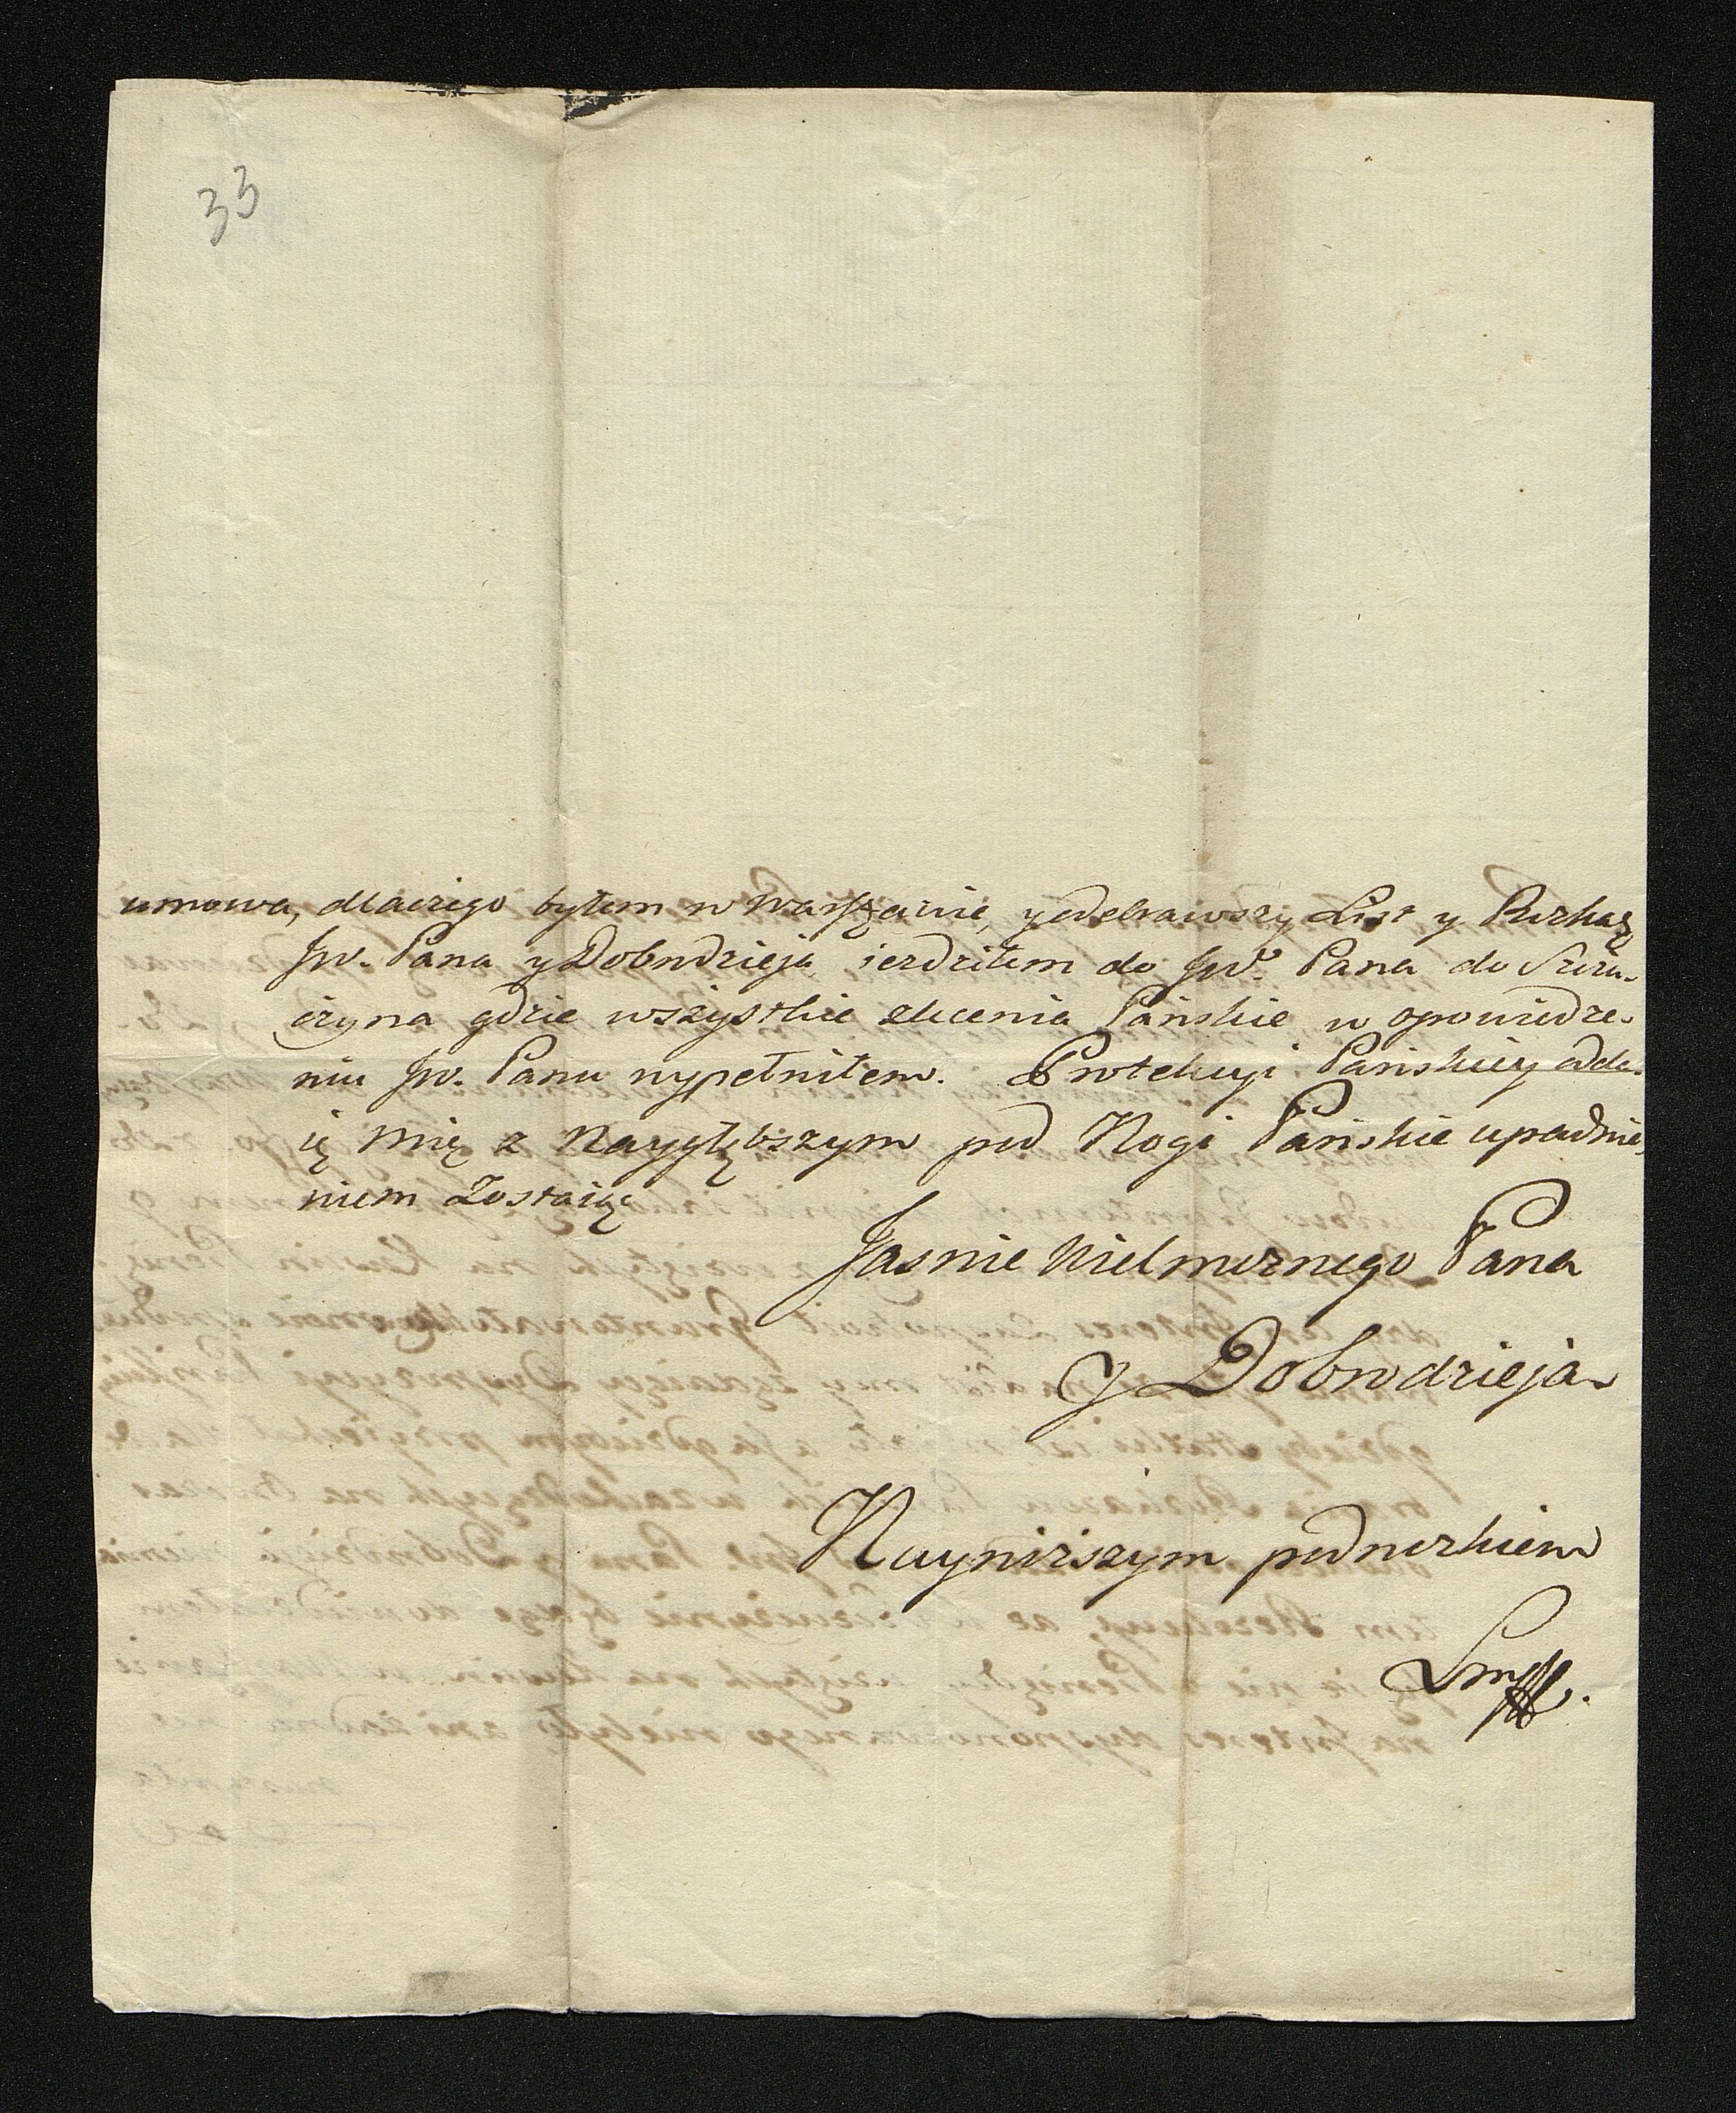 33
umowa, dlaczego byłem w Warszawie, y odebrawszy List y Rozkaz
Jw. Pana y Dobrodzieja iezdziłem do Jw. Pana do Szczu-
czyna gdzie wszystkie zlecenia Pańskie w opowiedze-
niu Jw. Panu wypełniłem. Protekcyi Pańskiey odda-
ię mię z Naygłębszym pod Nogi Pańskie upadnie-
niem Zostaię
Jasnie Wielmoznego Pana
y Dobrodzieja
Nayniższym podnozkiem